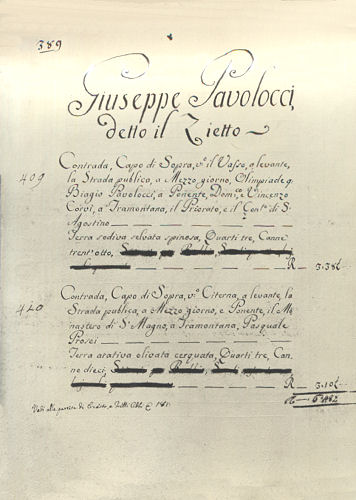 389
Giuseppe Pavolocci,
detto il Zietto
409
Contrada, Capo di Sopra, v.º il Vasso, a levante,
la Strada publica, a Mezzo giorno, Olimpiade q.
Biagio Pavolocci, a Ponente, Dom.co e Vincenzo
Corvi, a Tramontana, il Priorato, e il Con.to di S.
Agostino
Terra sodiva selvata spinosa, Quarti tre, Canne
trent'otto,
R 3.38
420
Contrada, Capo di Sopra, v.º Citerna, a levante, la
Strada publica, a Mezzo giorno, e Ponente, il Mo
nastero di S. Magno, a Tramontana, Pasquale
Prosei
Terra arativa olivata cerquata, Quarti tre, Can
ne dieci,
R 3.10
Vedi alle partite di